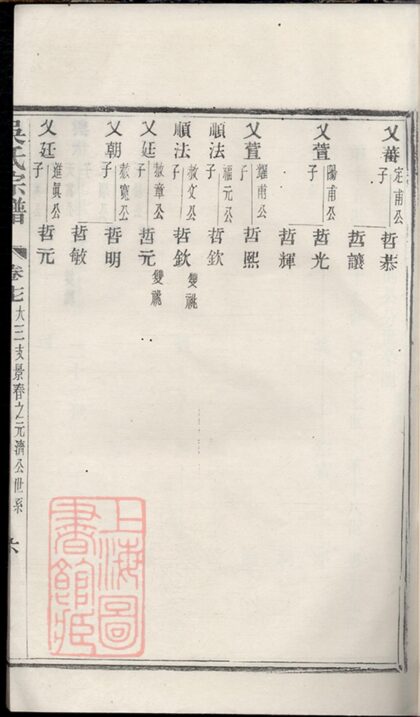 父蕃 定甫公子 哲恭
哲讓
父萱 陽甫公子 哲光
哲輝
父萱 耀甫公子 哲熙
順法 福元公子 哲欽
順法 敖文公子 哲欽 雙祧
父廷 敖章公子 哲元 雙祧
父朝 敖寬公子 哲明
哲敏
父廷 進眞公子 哲元
吳氏宗譜
卷七 大三支景春之元濟公世系 六
上海圖書館藏